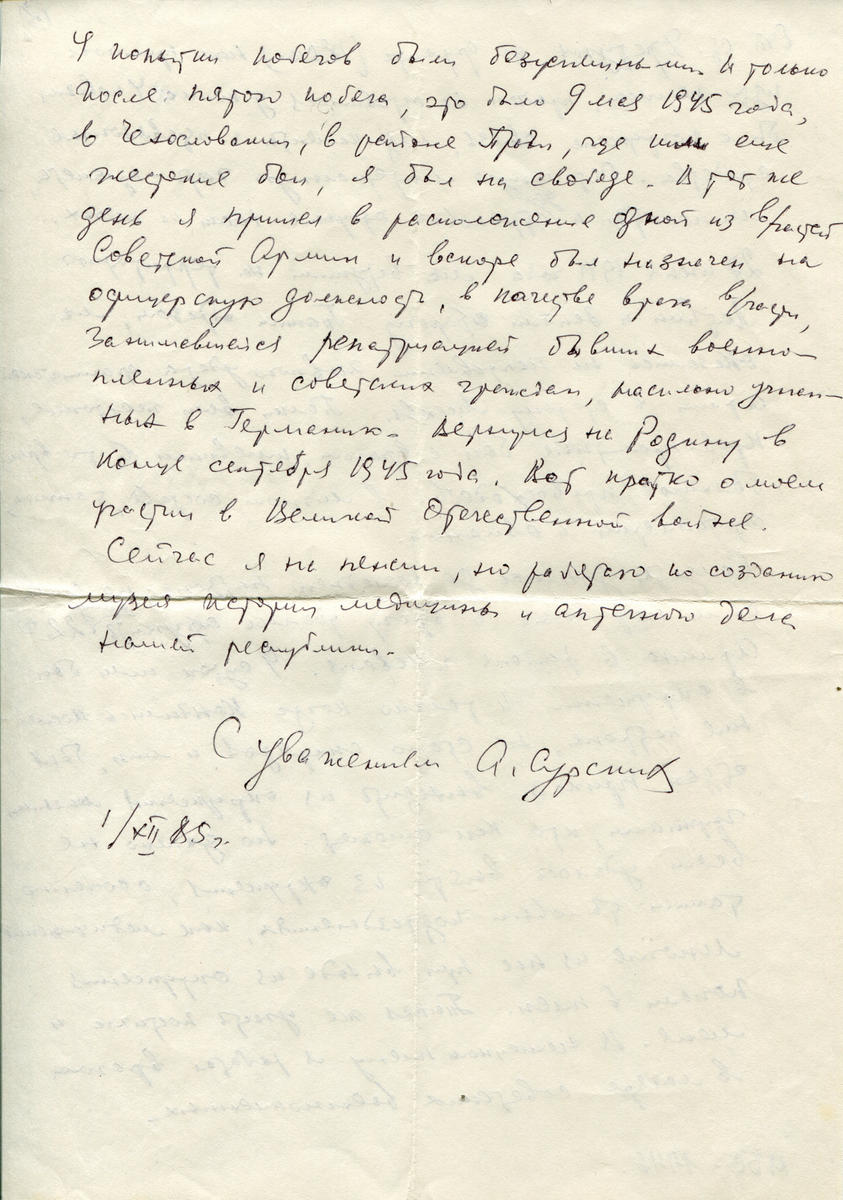 4 попытки побегов были безуспешными. И только
после пятого побега, это было 9 мая 1945 года,
в Чехословакии, в районе Праги, где шли еще
жестокие бои, я был на свободе. В тот же
день я пришел в расположение одной из в/частей
Советской Армии и вскоре был назначен на
офицерскую должность, в качестве врача в/части,
занимавшейся репатриацией бывших военно-
пленных и советских граждан, насильно угнан-
ных в Германию. Вернулся на Родину в
конце сентября 1945 года. Вот кратко о моем
участии в Великой Отечественной войне.
Сейчас я на пенсии, но работаю по созданию
музея истории медицины и аптечного дела
нашей республики.
С уважением А. Сурских
1/XII 85 г.